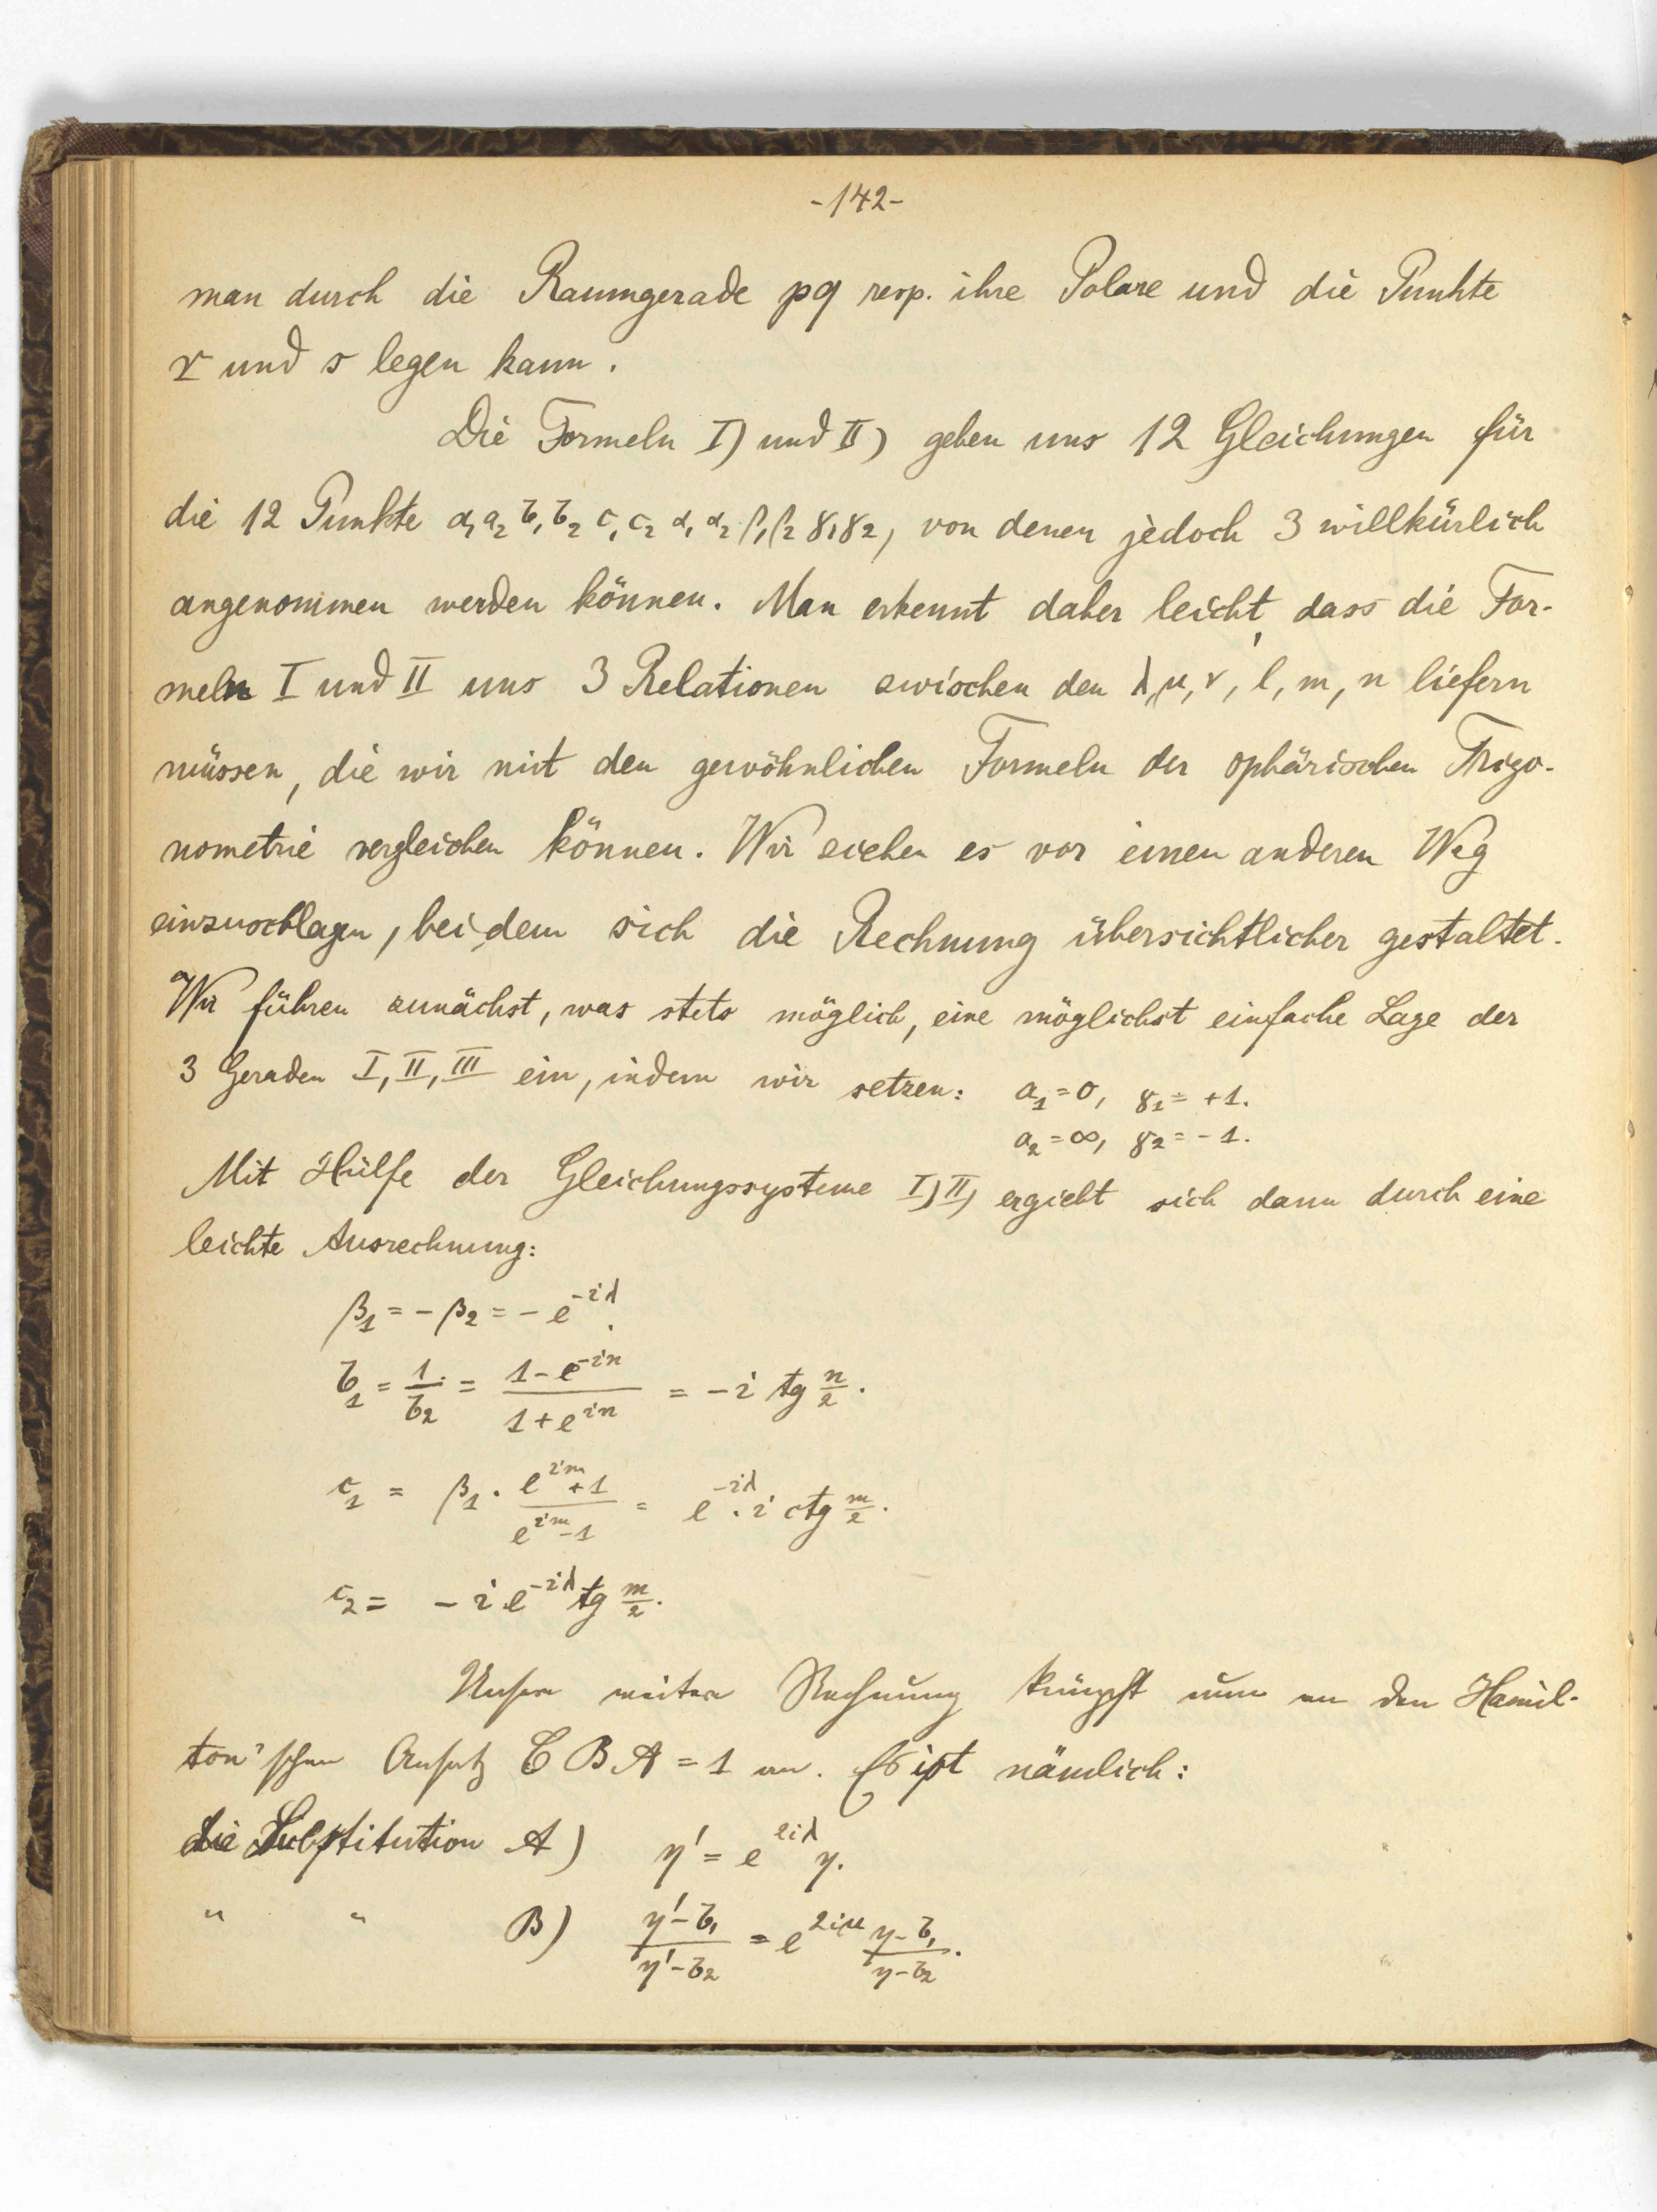 -142-
man durch die Raumgerade pq resp. ihre Polare und die Punkte
r und s legen kann.
Die Formeln I) und II) geben uns 12 Gleichungen für
die 12 Punkte a₁ a₂ b₁ b₂ c₁ c₂ α₁ α₂ β₁ β₂ γ₁ γ₂, von denen jedoch 3 willkürlich
angenommen werden können. Man erkennt daher leicht, dass die For-
meln I und II uns 3 Relationen zwischen den λ, μ, ν, l, m, n liefern
müssen, die wir mit den gewöhnlichen Formeln der sphärischen Trigo-
nometrie vergleichen können. Wir ziehen es vor einen anderen Weg
einzuschlagen, bei dem sich die Rechnung übersichtlicher gestaltet.
Wir führen zunächst, was stets möglich, eine möglichst einfache Lage der
3 Geraden I, II, III ein, indem wir setzen: a₁ = 0, γ₁ = +1.
a₂ = ∞, γ₂ = -1.
Mit Hülfe der Gleichungssysteme I) II) ergiebt sich dann durch eine
leichte Ausrechnung:
β₁ = - β₂ = - e^{-iλ}.
b₁ = 1/b₂ = (1 - e^{-in})/(1 + e^{in}) = - i tg n/2.
c₁ = β₁ · (e^{im} + 1)/(e^{im} - 1) = e^{-iλ} · i ctg m/2.
c₂ = - i e^{-iλ} tg m/2.
Unsere weitere Rechnung knüpft nun an den Hamil-
ton'schen Ansatz C B A = 1 an. Es ist nämlich:
die Substitution A) η' = e^{2iλ} η.
" " B) (η' - b₁)/(η' - b₂) = e^{2iμ} (η - b₁)/(η - b₂).